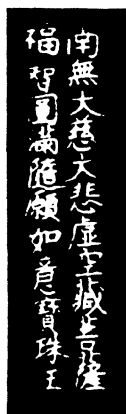 南無大慈大悲虚空藏菩薩
福智圓滿隨願如意寶珠王